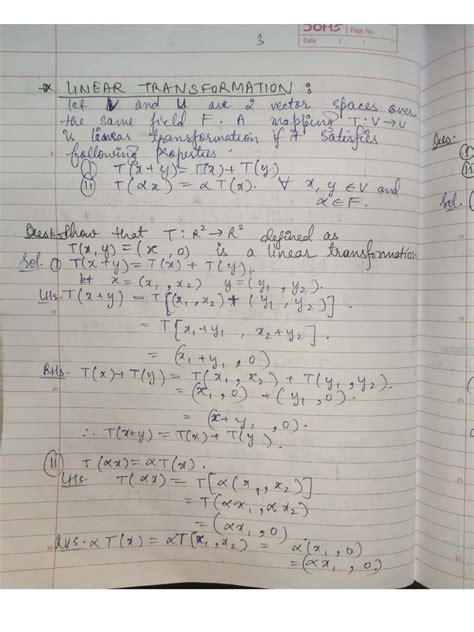 Page No.
Date / /
3
* LINEAR TRANSFORMATION :
let V and U are 2 vector spaces over
the same field F. A mapping T: V → U
is linear transformation if it satisfies
following properties.
Ⓘ T(x+y) = T(x) + T(y)
Ⓘⓘ T(αx) = αT(x). ∀ x, y ∈ V and
α ∈ F.
Ques:-
Sol.
Ques1. Show that T: R² → R² defined as
T(x, y) = (x, 0) is a linear transformation
Sol. Ⓘ T(x+y) = T(x) + T(y)
let x = (x₁, x₂) y = (y₁, y₂).
LHS- T(x+y) = T[(x₁, x₂) + (y₁, y₂)].
= T[x₁+y₁, x₂+y₂].
= (x₁+y₁, 0)
RHS- T(x)+T(y) = T(x₁, x₂) + T(y₁, y₂).
= (x₁, 0) + (y₁, 0).
= (x+y₁, 0).
∴ T(x+y) = T(x) + T(y).
Ⓘⓘ T(αx) = αT(x).
LHS- T(αx) = T[α(x₁, x₂)]
= T(αx₁, αx₂)
= (αx₁, 0)
RHS- αT(x) = αT(x₁, x₂) = α(x₁, 0)
= (αx₁, 0)